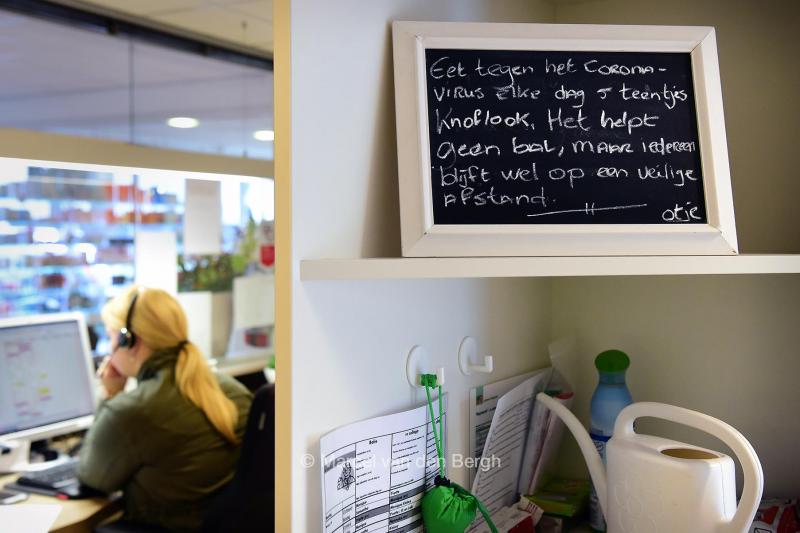 Eet tegen het CORONA-
VIRUS Elke dag 5 teentjes
Knoflook. Het helpt
geen bal, MAAR iedereen
blijft wel op een veilige
Afstand.
otje
© Marcel van den Bergh